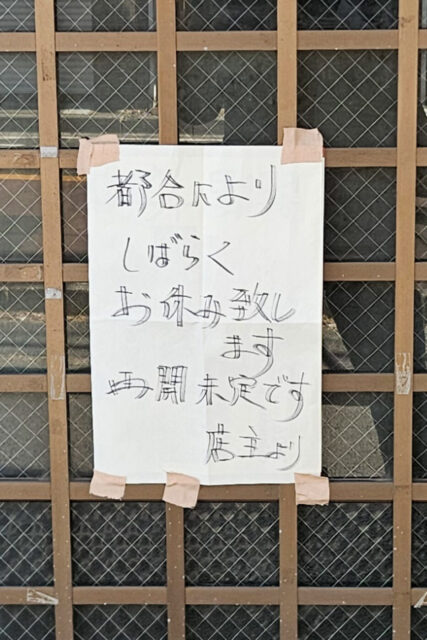 都合により
しばらく
お休み致し
ます
再開未定です
店主より